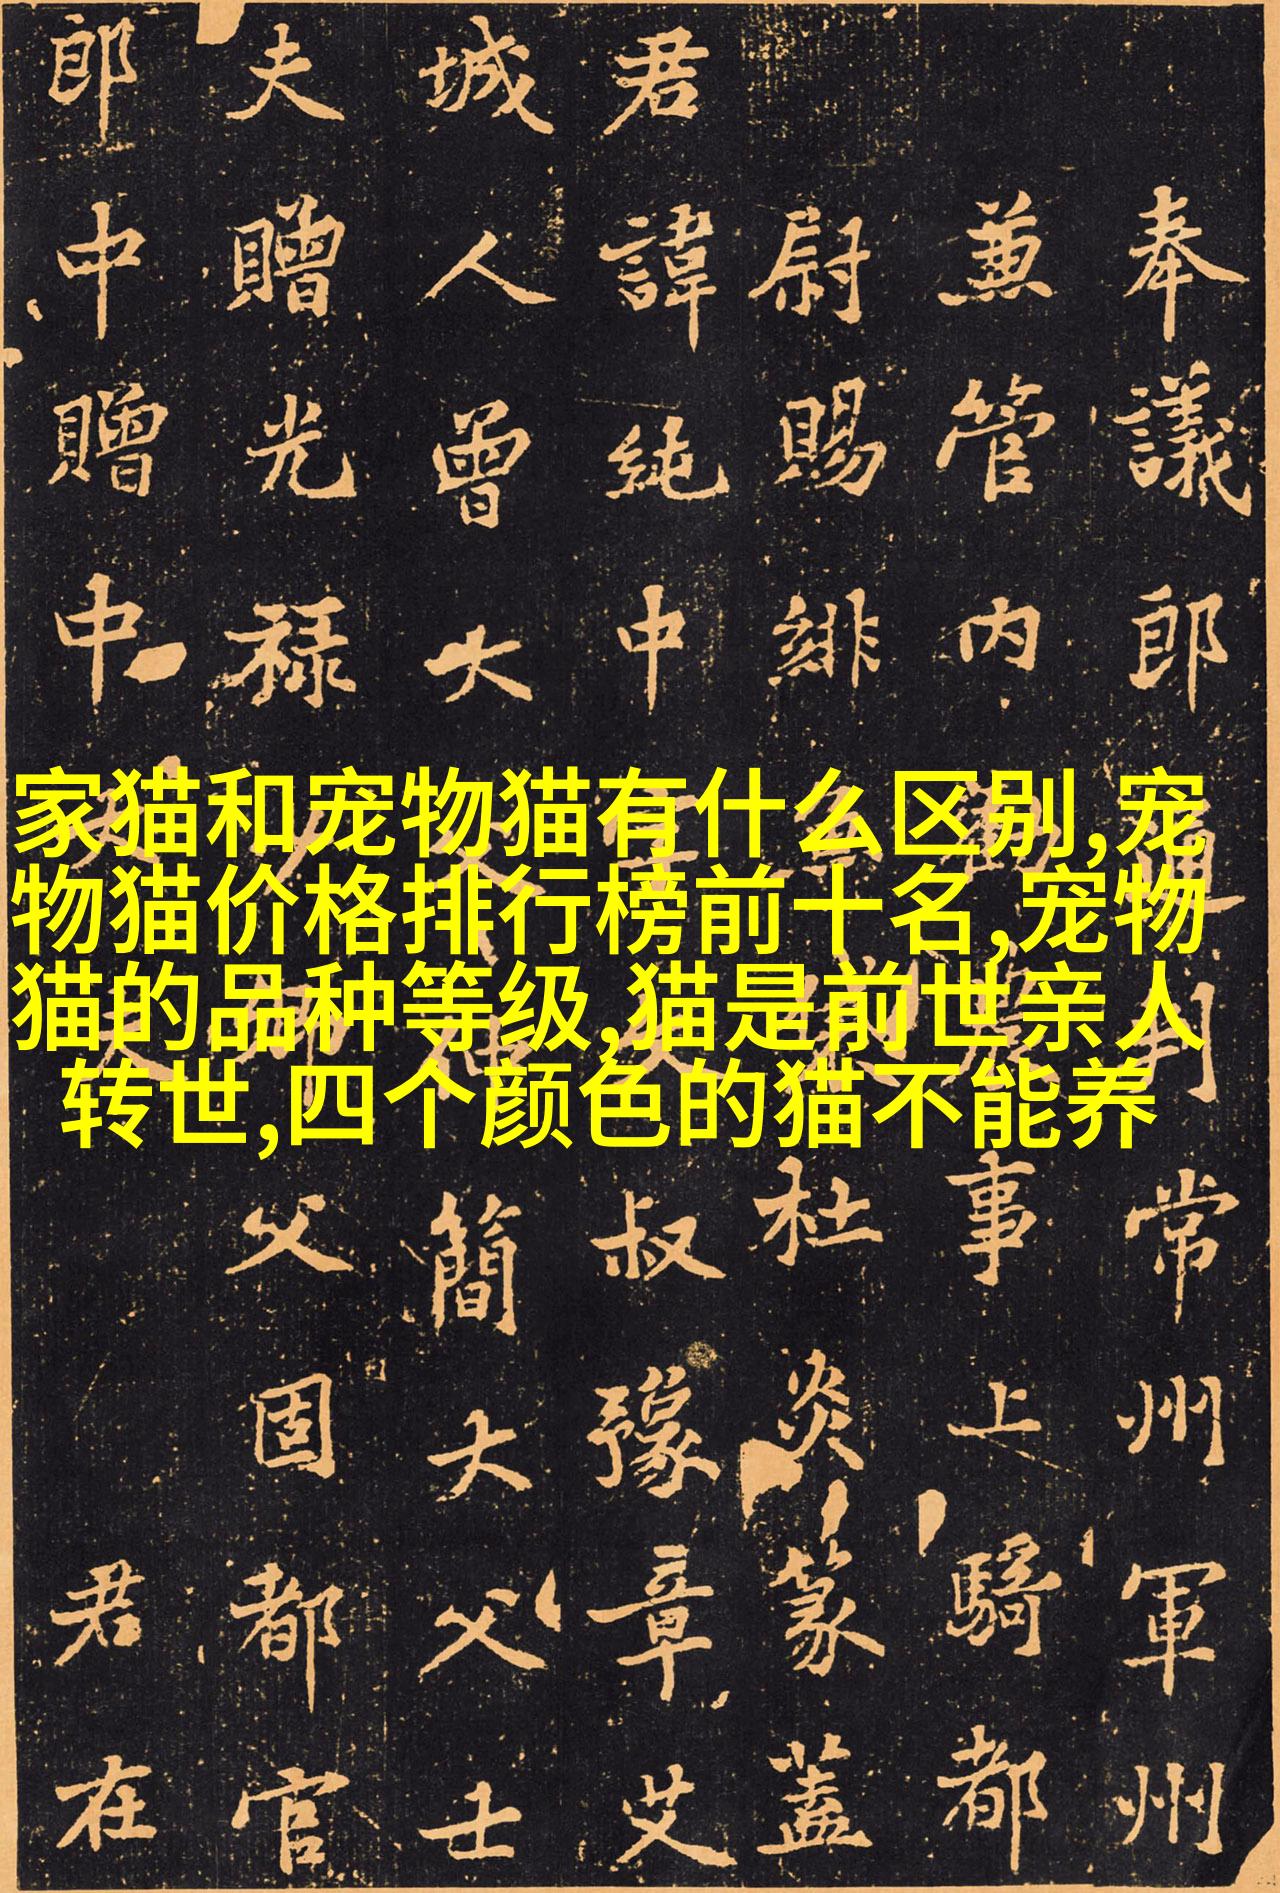 家猫和宠物猫有什么区别,宠
物猫价格排行榜前十名,宠物
猫的品种等级,猫是前世亲人
转世,四个颜色的猫不能养
奉議郎常州軍州
兼管内事上騎都
尉賜緋杜炎篆蓋
君諱純中叔豫章艾
城人曾大簡大父士
夫贈光禄父固都官
郎中贈中君在